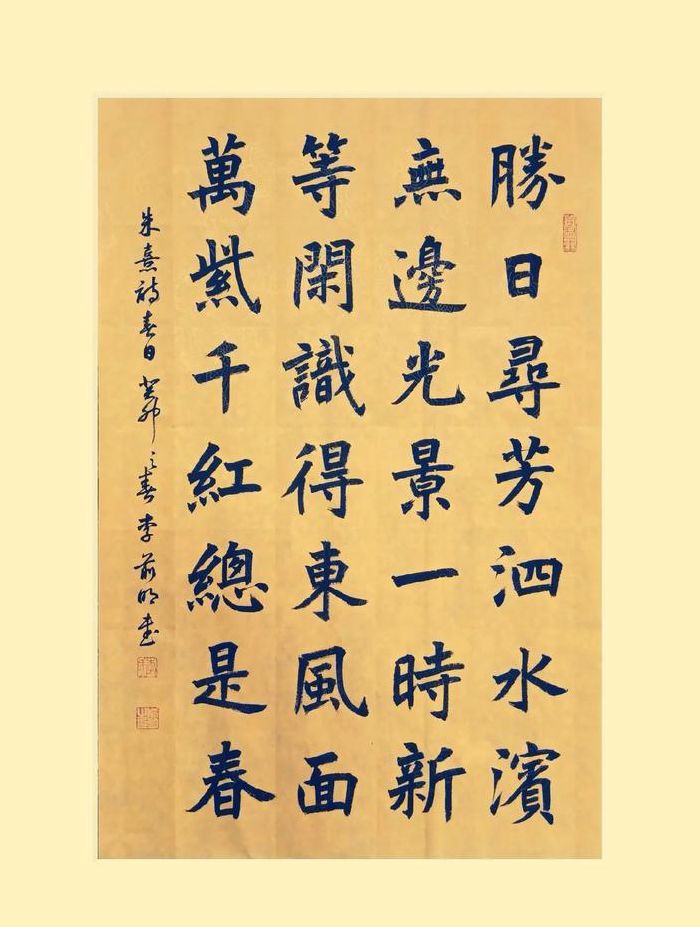 勝日尋芳泗水濱
無邊光景一時新
等閑識得東風面
萬紫千紅總是春
朱熹詩春日癸卯之春李前明書